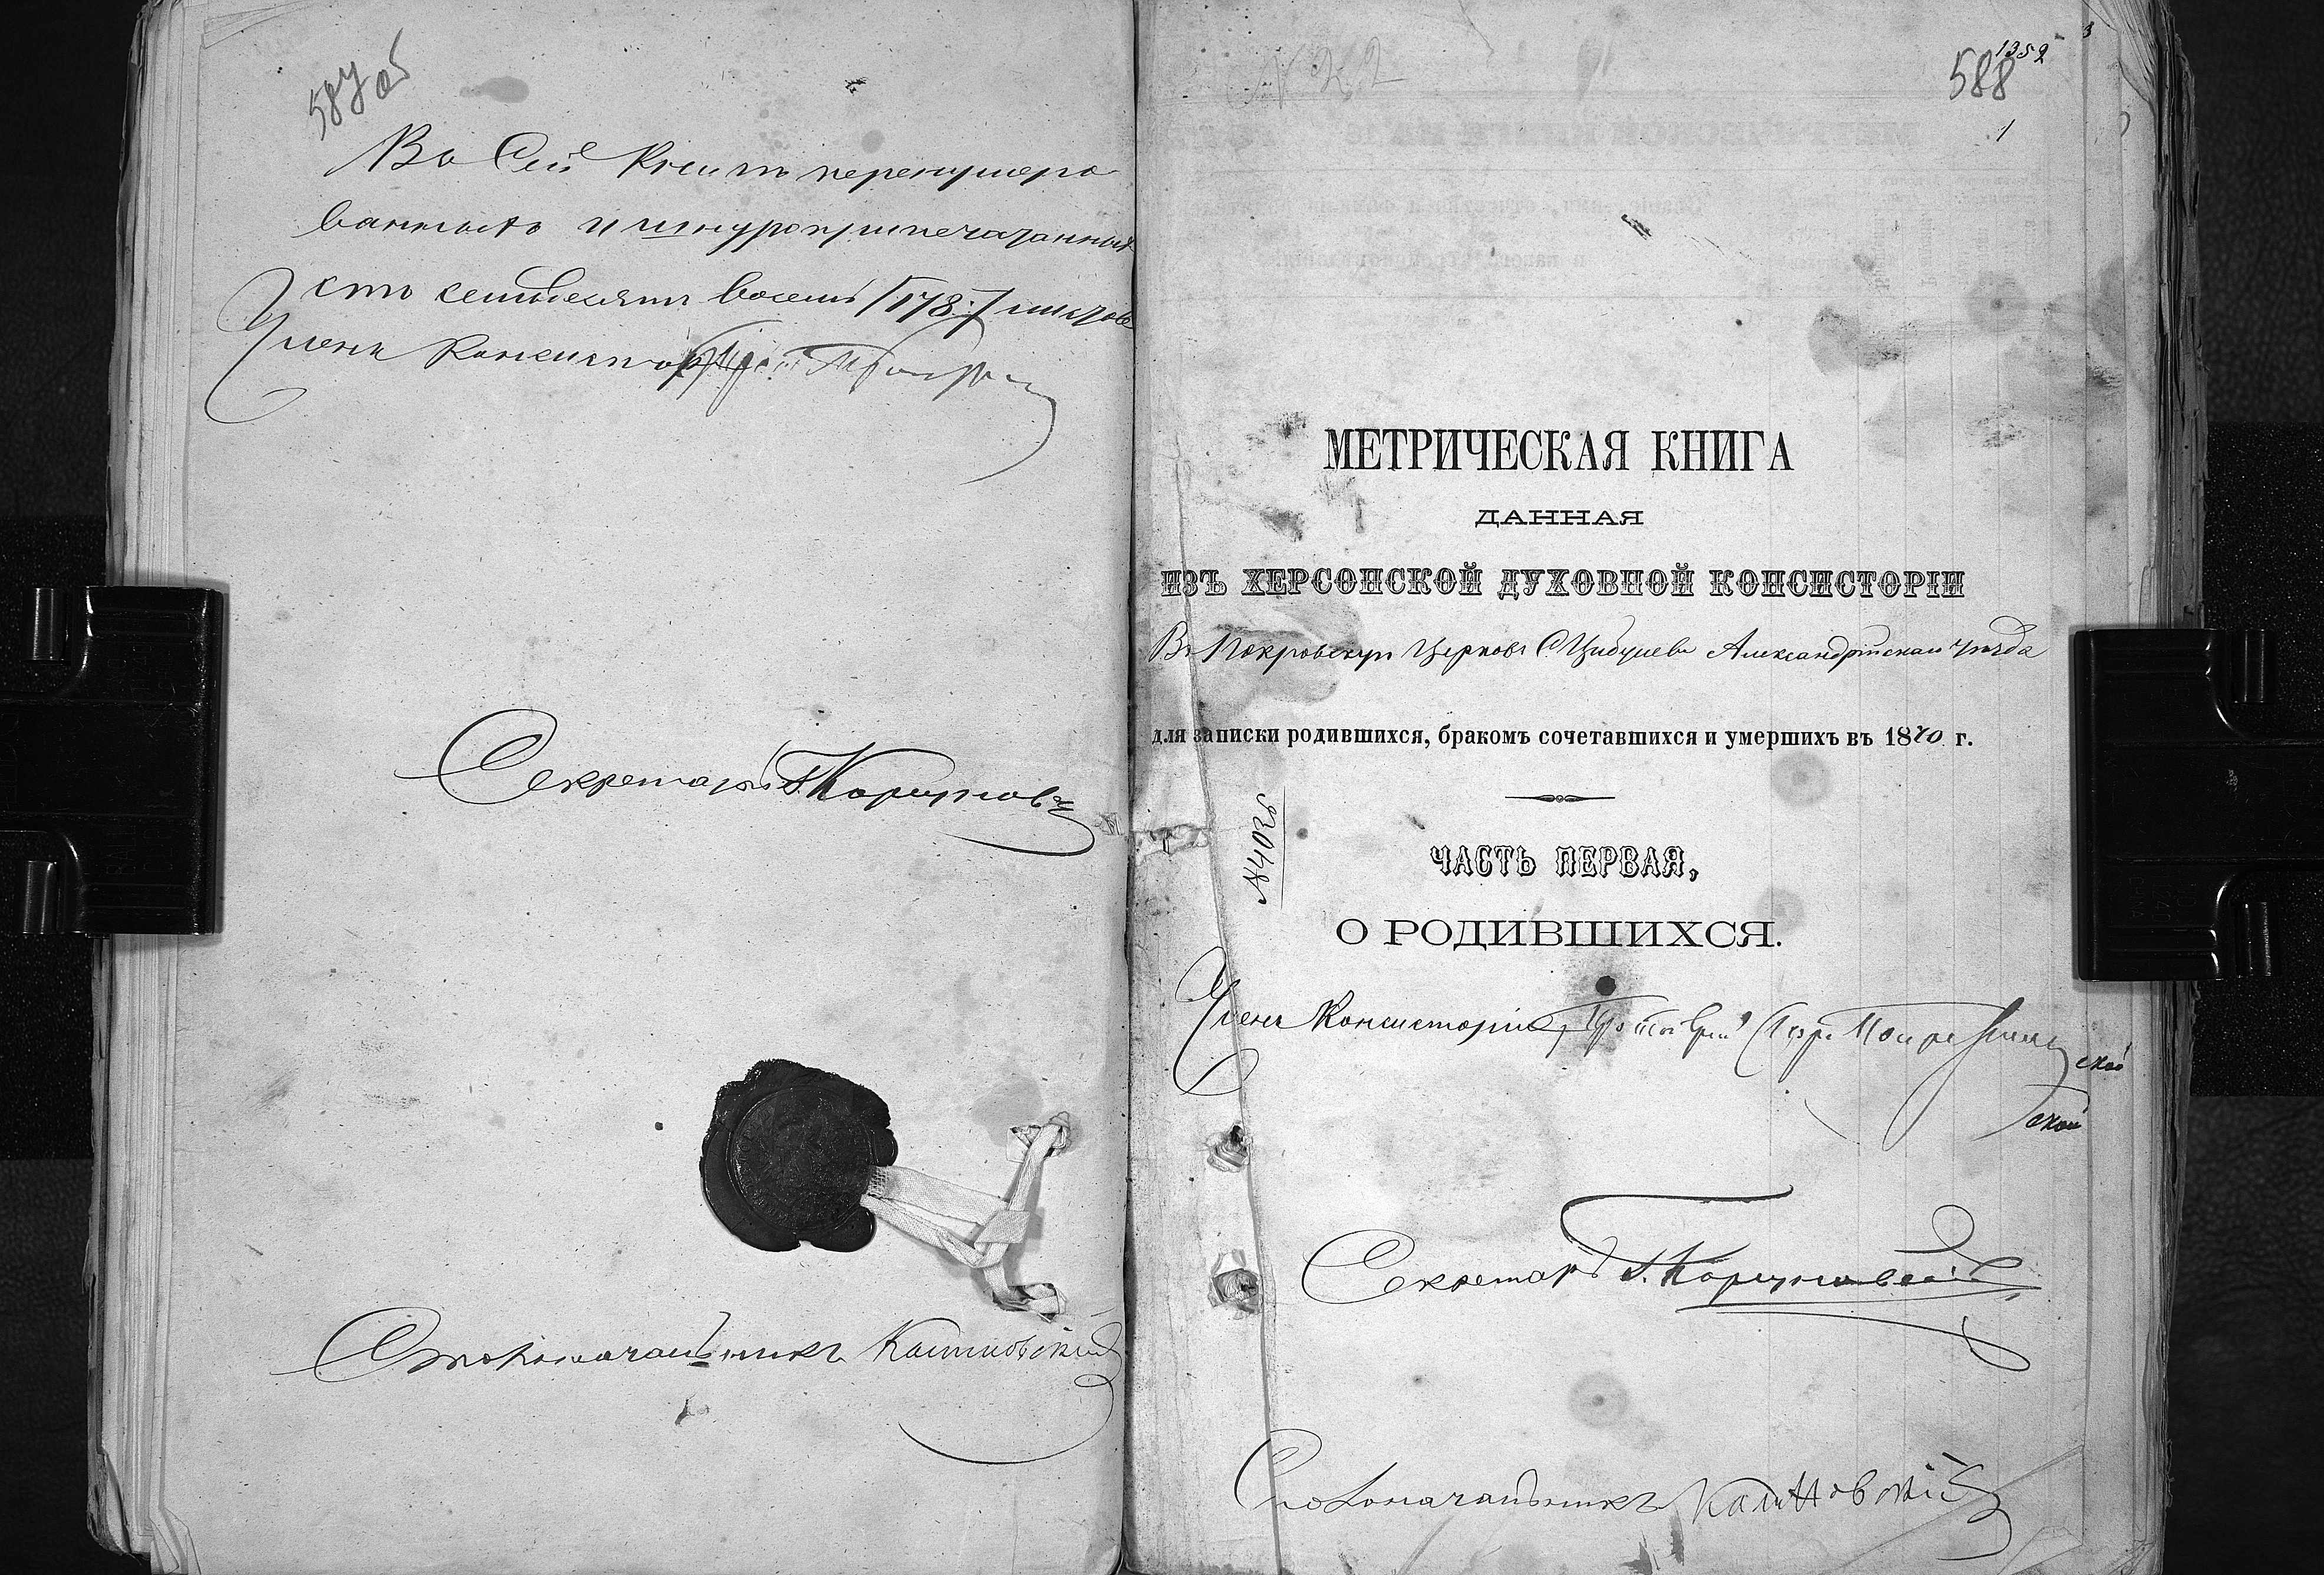 587 об
Въ Сей Книгѣ перенумеро
ванныхъ и шнуроприпечатанныхъ
сто семьдесятъ восемь /178./ листовъ
Членъ Консисторіи
Секретарь Г. Коршуновъ
Столоначальникъ Калиновскій
1352
588
1
МЕТРИЧЕСКАЯ КНИГА
ДАННАЯ
ИЗЪ ХЕРСОНСКОЙ ДУХОВНОЙ КОНСИСТОРІИ
Въ Покровскую Церковь С. Цибулева Александрійскаго уѣзда
для записки родившихся, бракомъ сочетавшихся и умершихъ въ 1870 г.
№ 4036
ЧАСТЬ ПЕРВАЯ,
О РОДИВШИХСЯ.
Членъ Консисторіи, Протоіерей
скій
скій
Секретарь Г. Коршуновскій
Столоначальникъ Калиновскій